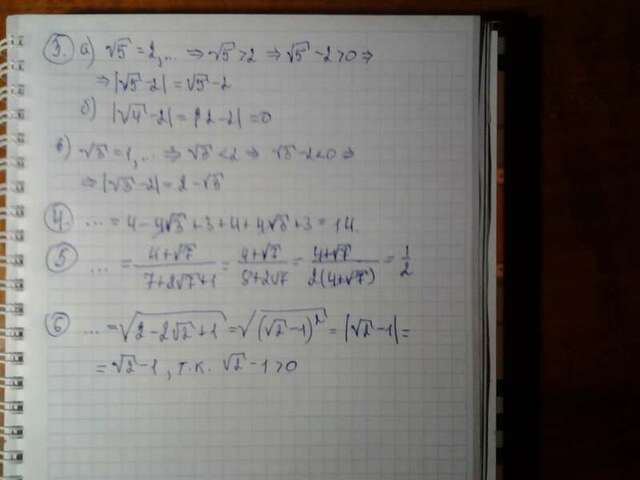 3. а) √5 = 2,... ⇒ √5 > 2 ⇒ √5 - 2 > 0 ⇒
⇒ |√5 - 2| = √5 - 2
б) |√4 - 2| = |2 - 2| = 0
в) √3 = 1,... ⇒ √3 < 2 ⇒ √3 - 2 < 0 ⇒
⇒ |√3 - 2| = 2 - √3
4. ... = 4 - 4√3 + 3 + 4 + 4√3 + 3 = 14.
5 ... = (4+√7)/(7+2√7+1) = (4+√7)/(8+2√7) = (4+√7)/(2(4+√7)) = 1/2
6 ... = √(2 - 2√2 + 1) = √((√2 - 1)²) = |√2 - 1| =
= √2 - 1, т.к. √2 - 1 > 0